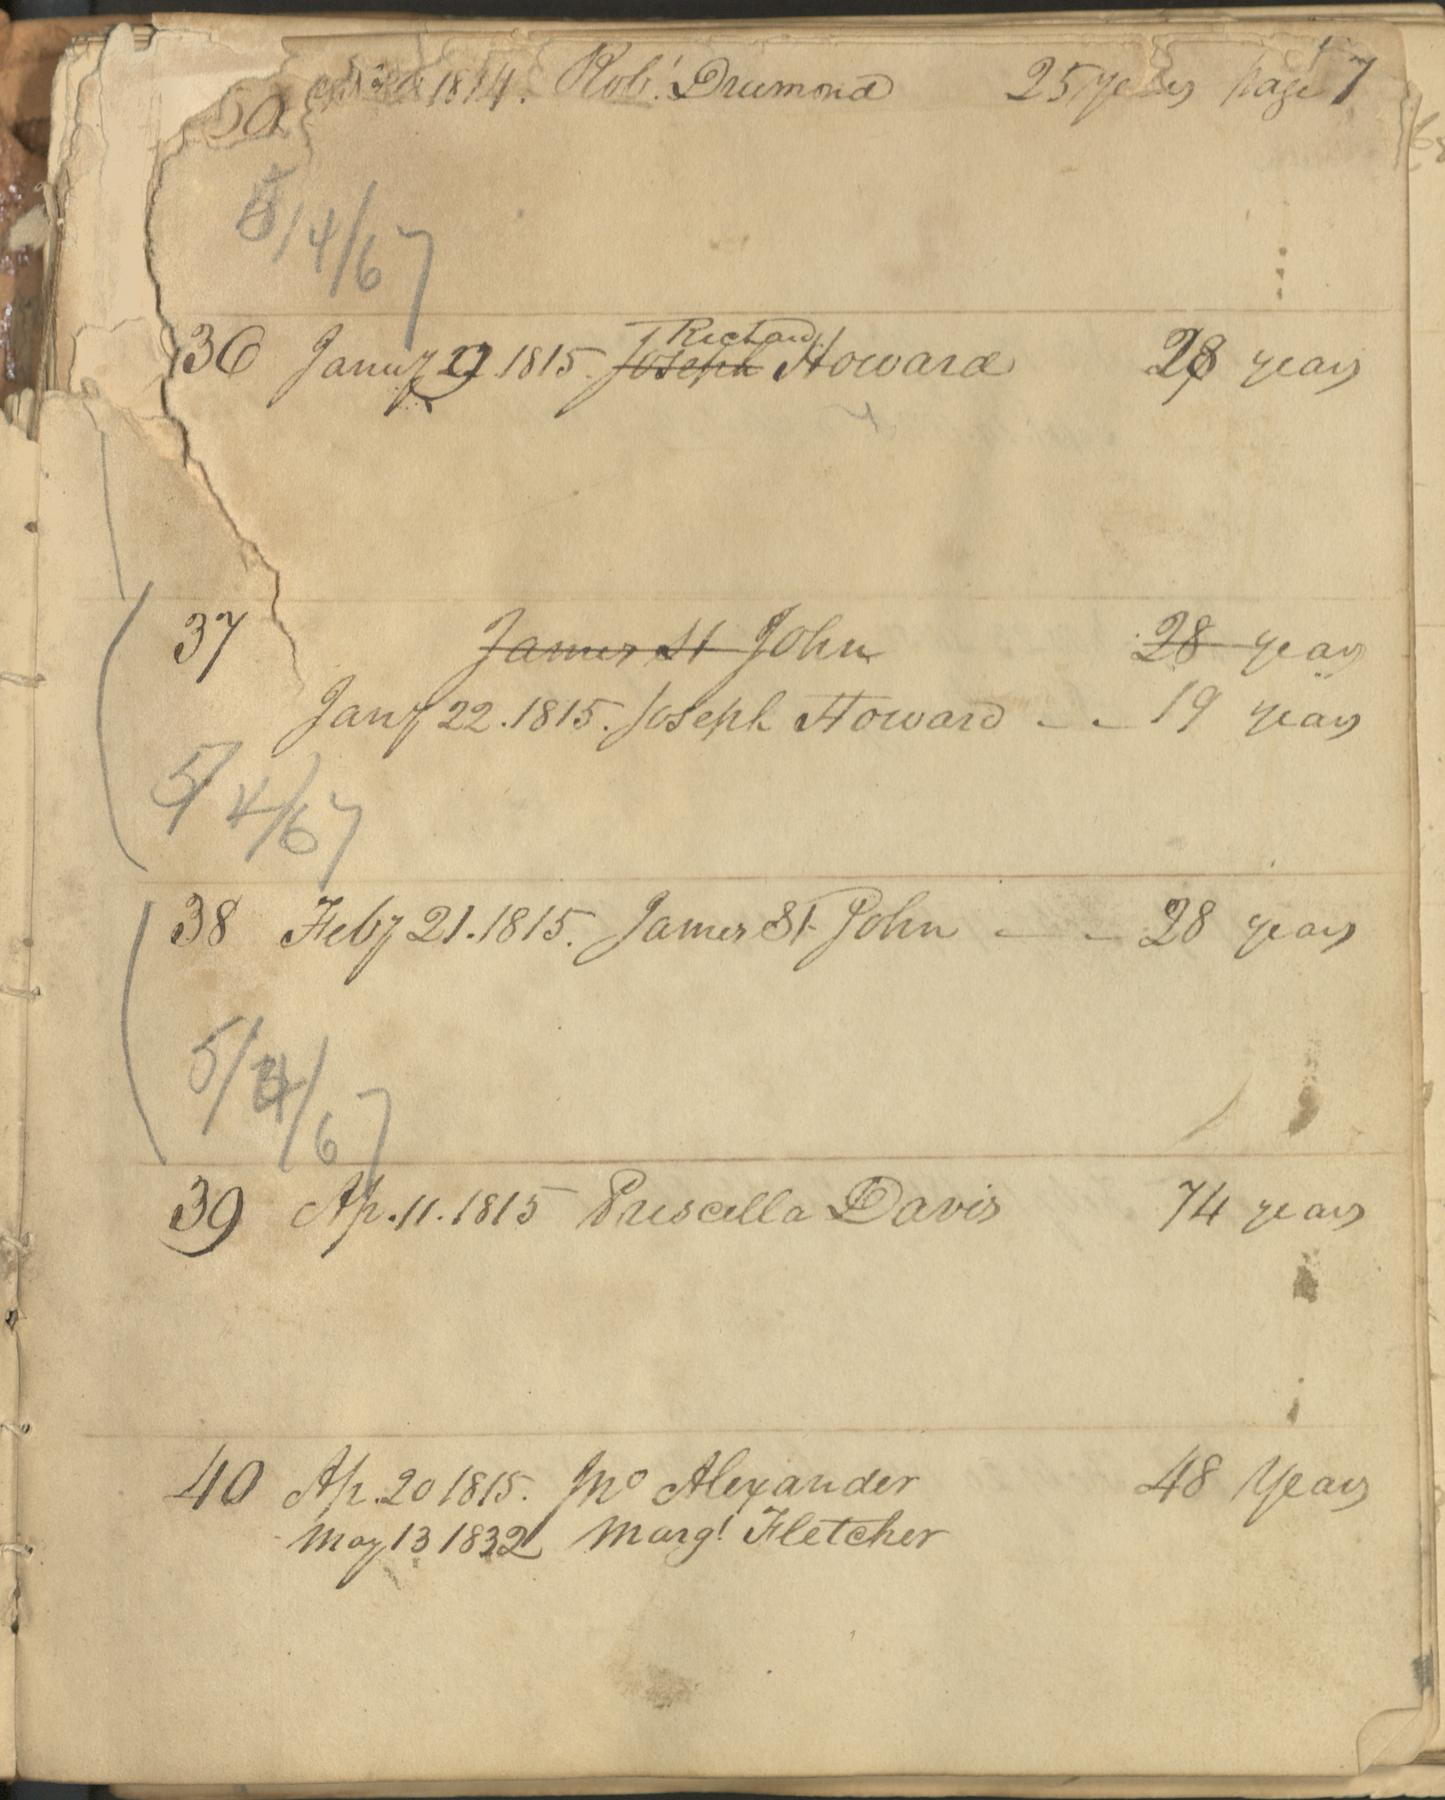 1814. Robt. Drumond 25 years page 7
5/4/67
36 Januy 9 1815. Joseph Richard Howard 28 years
37 James St John 28 years
Jany 22. 1815. Joseph Howard - - 19 years
5/4/67
38 Feby 21. 1815. James St John - - 28 years
5/4/67
39 Ap. 11. 1815 Priscella Davis 74 years
40 Ap. 20 1815. Jno Alexander 48 Years
May 13 1832 Margt Fletcher